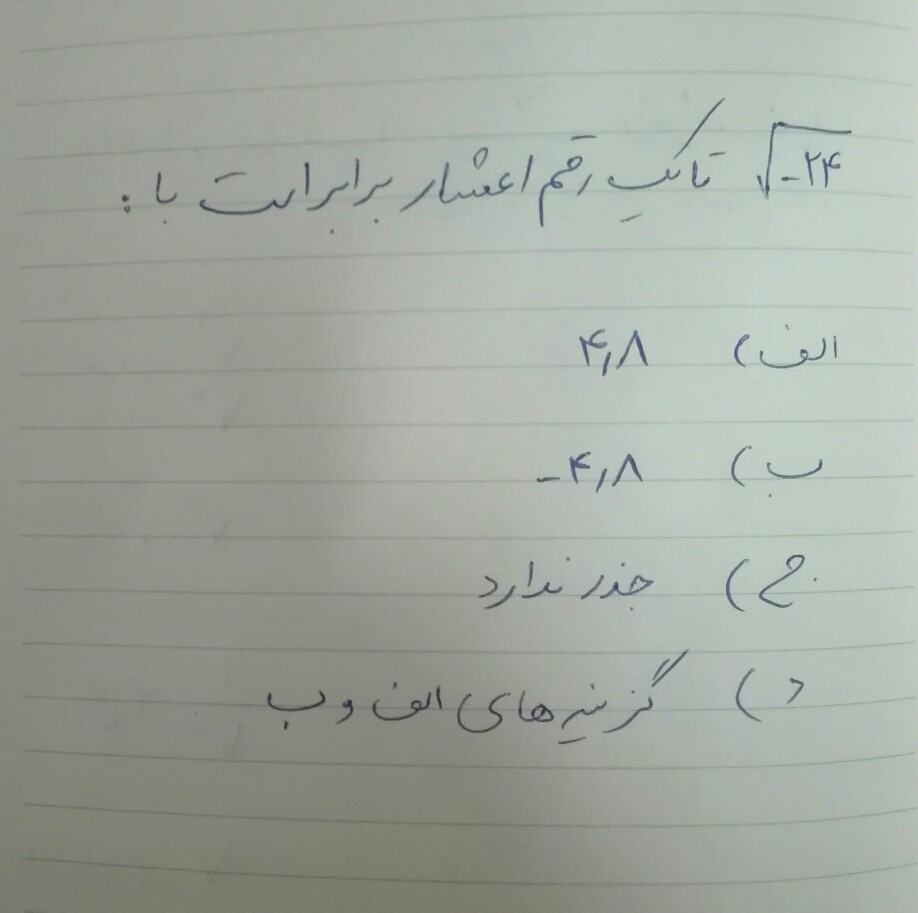 √-۲۴ تا یک رقم اعشار برابر است با :
الف) ۴٫۸
ب) -۴٫۸
ج) جذر ندارد
د) گزینه های الف و ب